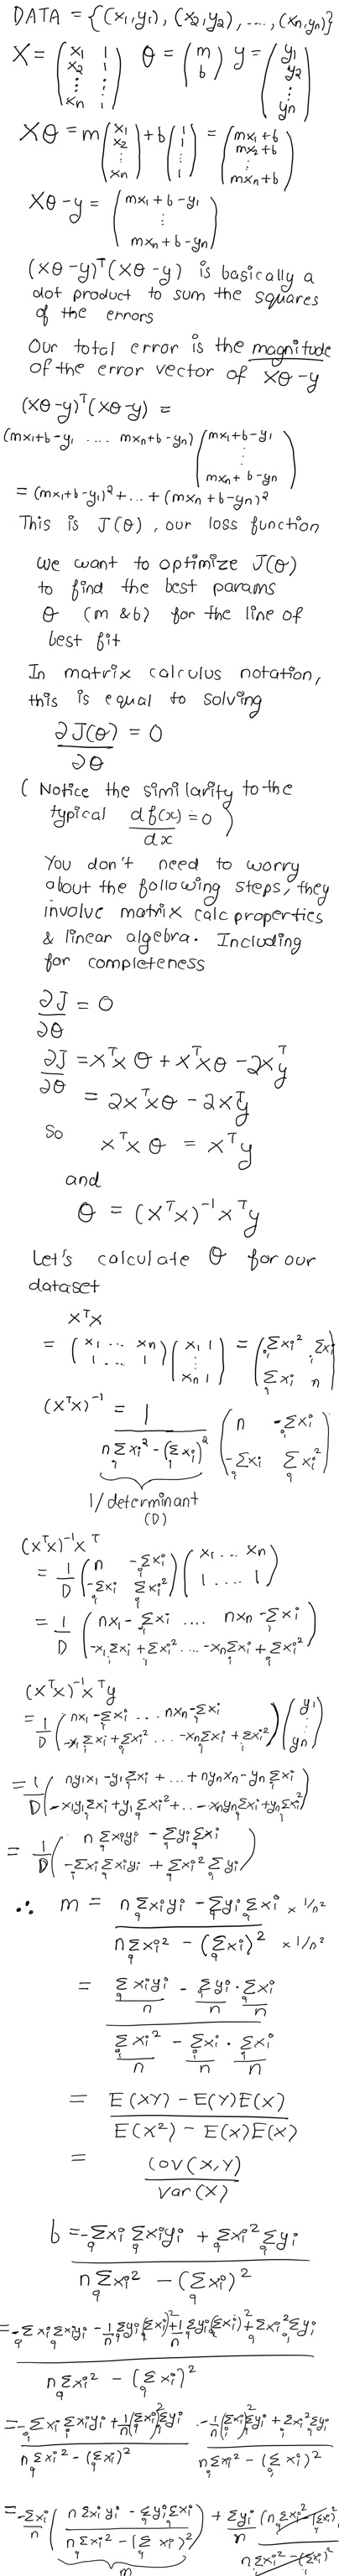 DATA = {(x₁,y₁), (x₂,y₂), ...., (xₙ,yₙ)}
X = (x₁ 1
x₂ 1
⋮ ⋮
xₙ 1) θ = (m
b) y = (y₁
y₂
⋮
yₙ)
Xθ = m(x₁
x₂
⋮
xₙ) + b(1
1
⋮
1) = (mx₁+b
mx₂+b
⋮
mxₙ+b)
Xθ-y = (mx₁+b-y₁
⋮
mxₙ+b-yₙ)
(Xθ-y)ᵀ(Xθ-y) is basically a
dot product to sum the squares
of the errors
Our total error is the magnitude
of the error vector of Xθ-y
(Xθ-y)ᵀ(Xθ-y) =
(mx₁+b-y₁ .... mxₙ+b-yₙ)(mx₁+b-y₁
⋮
mxₙ+b-yₙ)
= (mx₁+b-y₁)²+...+(mxₙ+b-yₙ)²
This is J(θ), our loss function
We want to optimize J(θ)
to find the best params
θ (m & b) for the line of
best fit
In matrix calculus notation,
this is equal to solving
∂J(θ)/∂θ = 0
(Notice the similarity to the
typical df(x)/dx = 0)
You don't need to worry
about the following steps, they
involve matrix calc properties
& linear algebra. Including
for completeness
∂J/∂θ = 0
∂J/∂θ = XᵀXθ + XᵀXθ - 2Xᵀy
= 2XᵀXθ - 2Xᵀy
So XᵀXθ = Xᵀy
and
θ = (XᵀX)⁻¹Xᵀy
Let's calculate θ for our
dataset
XᵀX
= (x₁ ... xₙ
1 .... 1)(x₁ 1
⋮
xₙ 1) = (Σxᵢ² Σxᵢ
Σxᵢ n)
(XᵀX)⁻¹ = 1/(nΣxᵢ² - (Σxᵢ)²) (n -Σxᵢ
-Σxᵢ Σxᵢ²)
1/determinant
(D)
(XᵀX)⁻¹Xᵀ
= 1/D (n -Σxᵢ
-Σxᵢ Σxᵢ²)(x₁ .... xₙ
1 .... 1)
= 1/D (nx₁-Σxᵢ .... nxₙ-Σxᵢ
-x₁Σxᵢ+Σxᵢ² ... -xₙΣxᵢ+Σxᵢ²)
(XᵀX)⁻¹Xᵀy
= 1/D (nx₁-Σxᵢ ... nxₙ-Σxᵢ
-x₁Σxᵢ+Σxᵢ² ... -xₙΣxᵢ+Σxᵢ²)(y₁
⋮
yₙ)
= 1/D (ny₁x₁-y₁Σxᵢ+...+nyₙxₙ-yₙΣxᵢ
-x₁y₁Σxᵢ+y₁Σxᵢ²+..-xₙyₙΣxᵢ+yₙΣxᵢ²)
= 1/D (nΣxᵢyᵢ - ΣyᵢΣxᵢ
-ΣxᵢΣxᵢyᵢ + Σxᵢ²Σyᵢ)
∴ m = (nΣxᵢyᵢ - ΣyᵢΣxᵢ × 1/n²)/(nΣxᵢ² - (Σxᵢ)² × 1/n²)
= (Σxᵢyᵢ/n - Σyᵢ/n · Σxᵢ/n)/(Σxᵢ²/n - Σxᵢ/n · Σxᵢ/n)
= (E(XY) - E(Y)E(X))/(E(X²) - E(X)E(X))
= Cov(X,Y)/Var(X)
b = (-ΣxᵢΣxᵢyᵢ + Σxᵢ²Σyᵢ)/(nΣxᵢ² - (Σxᵢ)²)
= (-ΣxᵢΣxᵢyᵢ - 1/n Σyᵢ(Σxᵢ)² + 1/n Σyᵢ(Σxᵢ)² + Σxᵢ²Σyᵢ)/(nΣxᵢ² - (Σxᵢ)²)
= (-ΣxᵢΣxᵢyᵢ + 1/n(Σxᵢ)²Σyᵢ)/(nΣxᵢ² - (Σxᵢ)²) (-1/n(Σxᵢ)²Σyᵢ + Σxᵢ²Σyᵢ)/(nΣxᵢ² - (Σxᵢ)²)
= -Σxᵢ/n ((nΣxᵢyᵢ - ΣyᵢΣxᵢ)/(nΣxᵢ² - (Σxᵢ)²)) + Σyᵢ/n (nΣxᵢ² - (Σxᵢ)²)/(nΣxᵢ² - (Σxᵢ)²)
m